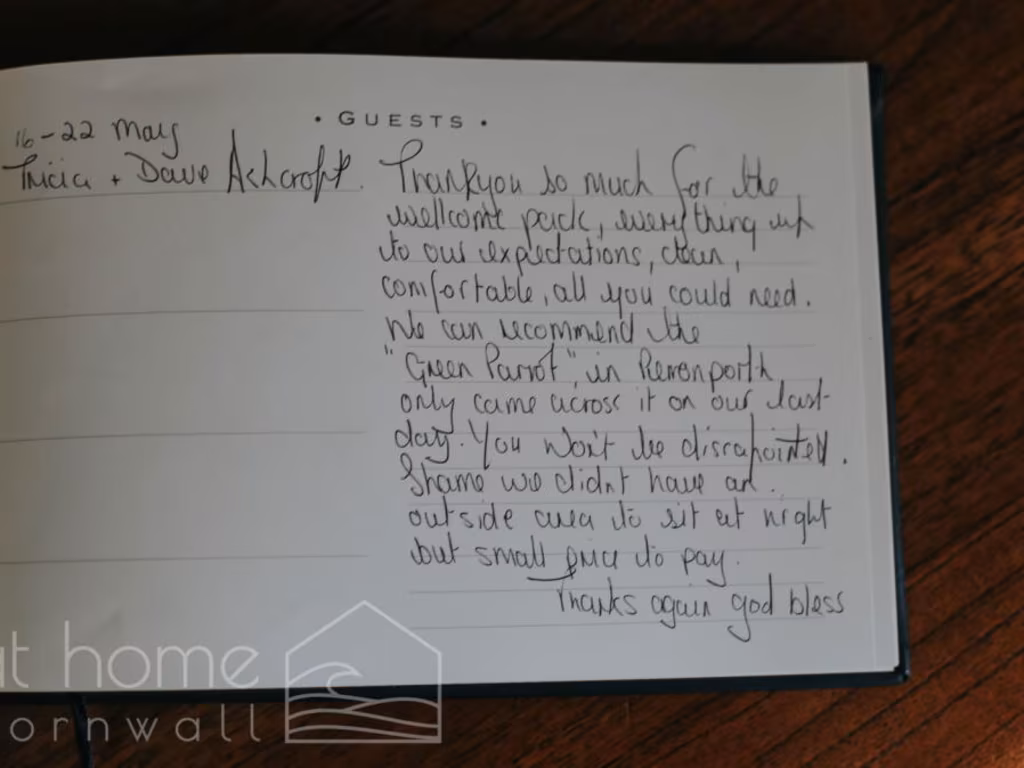 • GUESTS •
16-22 May
Tricia + Dave Ashcroft.
Thankyou so much for the
wellcome pack, everything up
to our expectations, clean,
comfortable, all you could need.
We can recommend the
"Green Parrot", in Perrenporth
only came across it on our last
day. You won't be dissapointed.
Shame we didnt have an
outside area to sit at night
but small price to pay.
Thanks again god bless
at home
ornwall